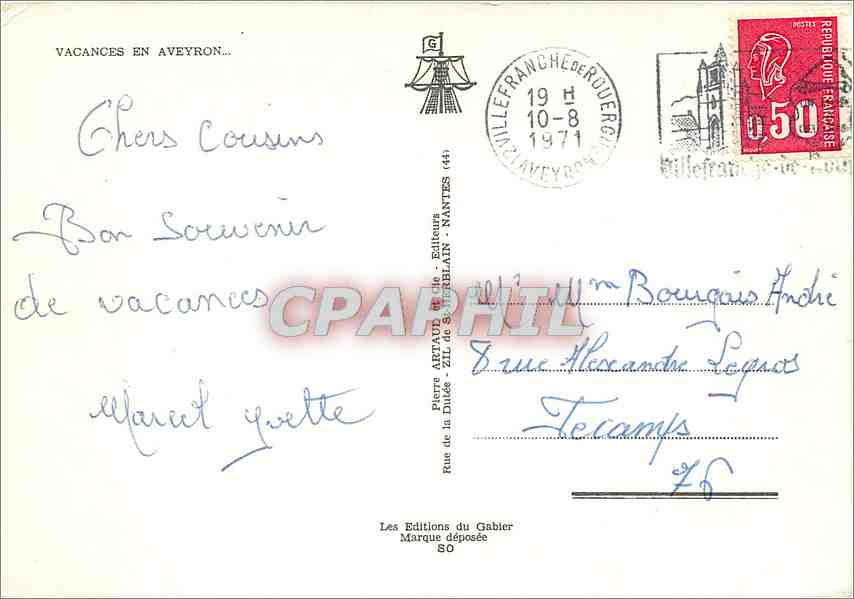 VACANCES EN AVEYRON...
G
Chers Cousins
Bon Souvenir
de vacances
Marcel Yvette
Pierre ARTAUD et Cie - Editeurs
Rue de la Dutée - ZIL de St-HERBLAIN - NANTES (44)
12 VILLEFRANCHE DE ROUERGUE AVEYRON
19 H
10-8
1971
Villefranche-de-Rou
POSTES
RÉPUBLIQUE FRANÇAISE
0,50
Mr Mm Bourgais André
8 rue Alexandre Legros
Fecamps
76
Les Editions du Gabier
Marque déposée
SO
CPAPHIL